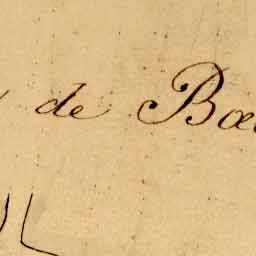 de Bœ